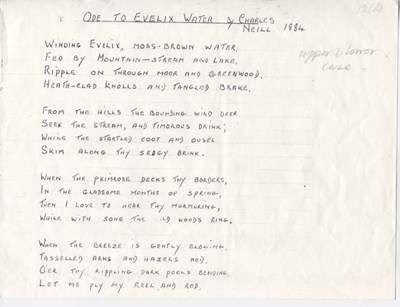 ODE TO EVELIX WATER by CHARLES
NEILL. 1884
12.4
upper & lower
case.
WINDING EVELIX, MOSS-BROWN WATER,
FED BY MOUNTAIN-STREAM AND LAKE,
RIPPLE ON THROUGH MOOR AND GREENWOOD,
HEATH-CLAD KNOLLS AND TANGLED BRAKE,
FROM THE HILLS THE BOUNDING WILD DEER
SEEK THE STREAM, AND TIMOROUS DRINK;
WHILE THE STARTLED COOT AND OUSEL
SKIM ALONG THY SEDGY BRINK.
WHEN THE PRIMROSE DECKS THY BORDERS,
IN THE GLADSOME MONTHS OF SPRING,
THEN I LOVE TO HEAR THY MURMURING,
WHILE WITH SONG THE OLD WOODS RING.
WHEN THE BREEZE IS GENTLY BLOWING,
TASSELLED ARNS AND HAZELS NOD,
O'ER THY RIPPLING DARK POOLS BENDING,
LET ME PLY MY REEL AND ROD.